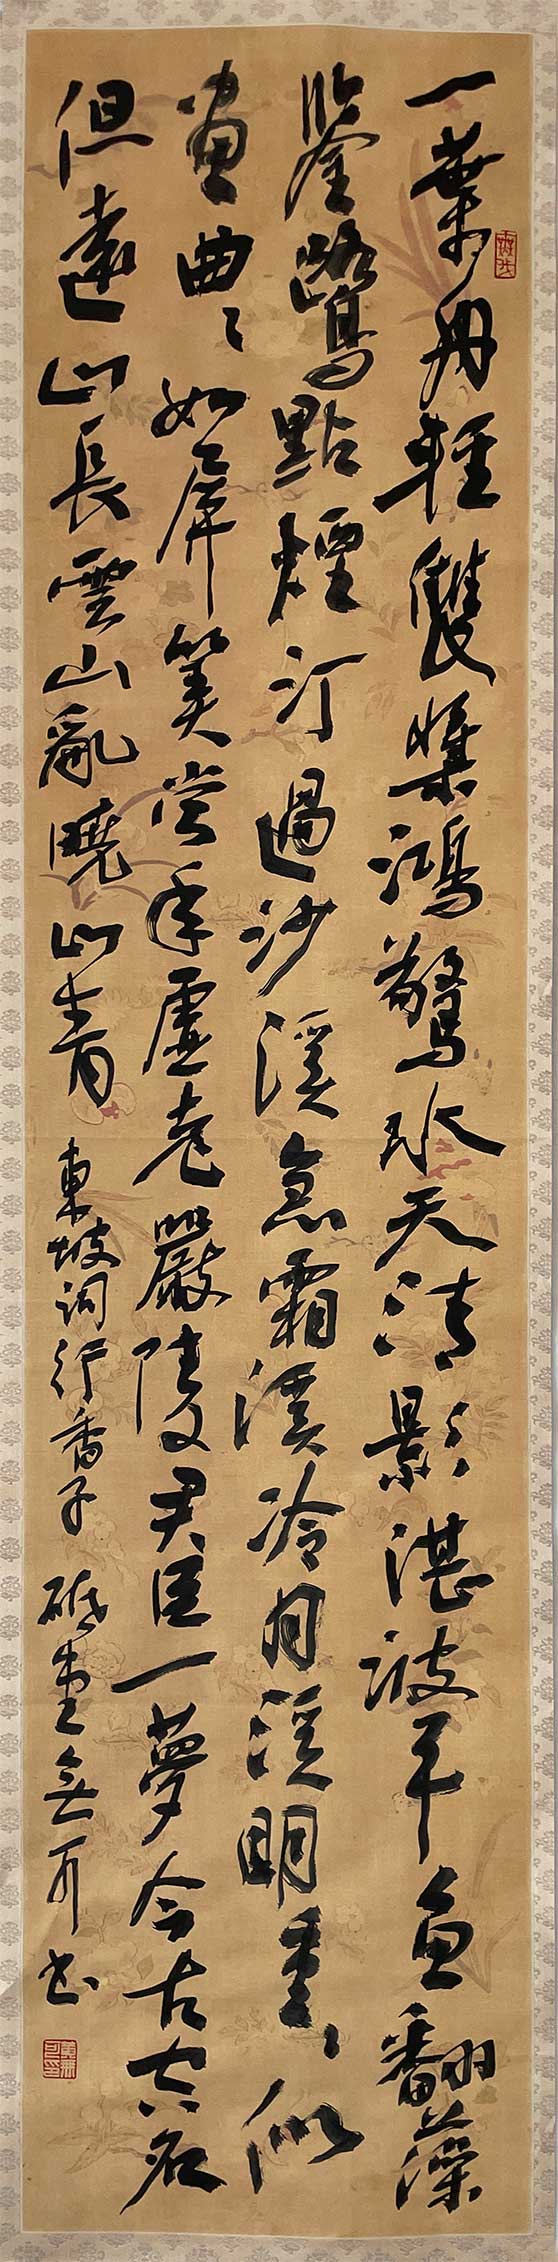 一葉舟輕雙槳鴻驚水天清影湛波平魚翻藻
鑒鷺點煙汀過沙溪急霜溪冷月溪明重〻似
畫曲〻如屏算當年虛老嚴陵君臣一夢今古空名
但遠山長雲山亂曉山青 東坡詞行香子 書